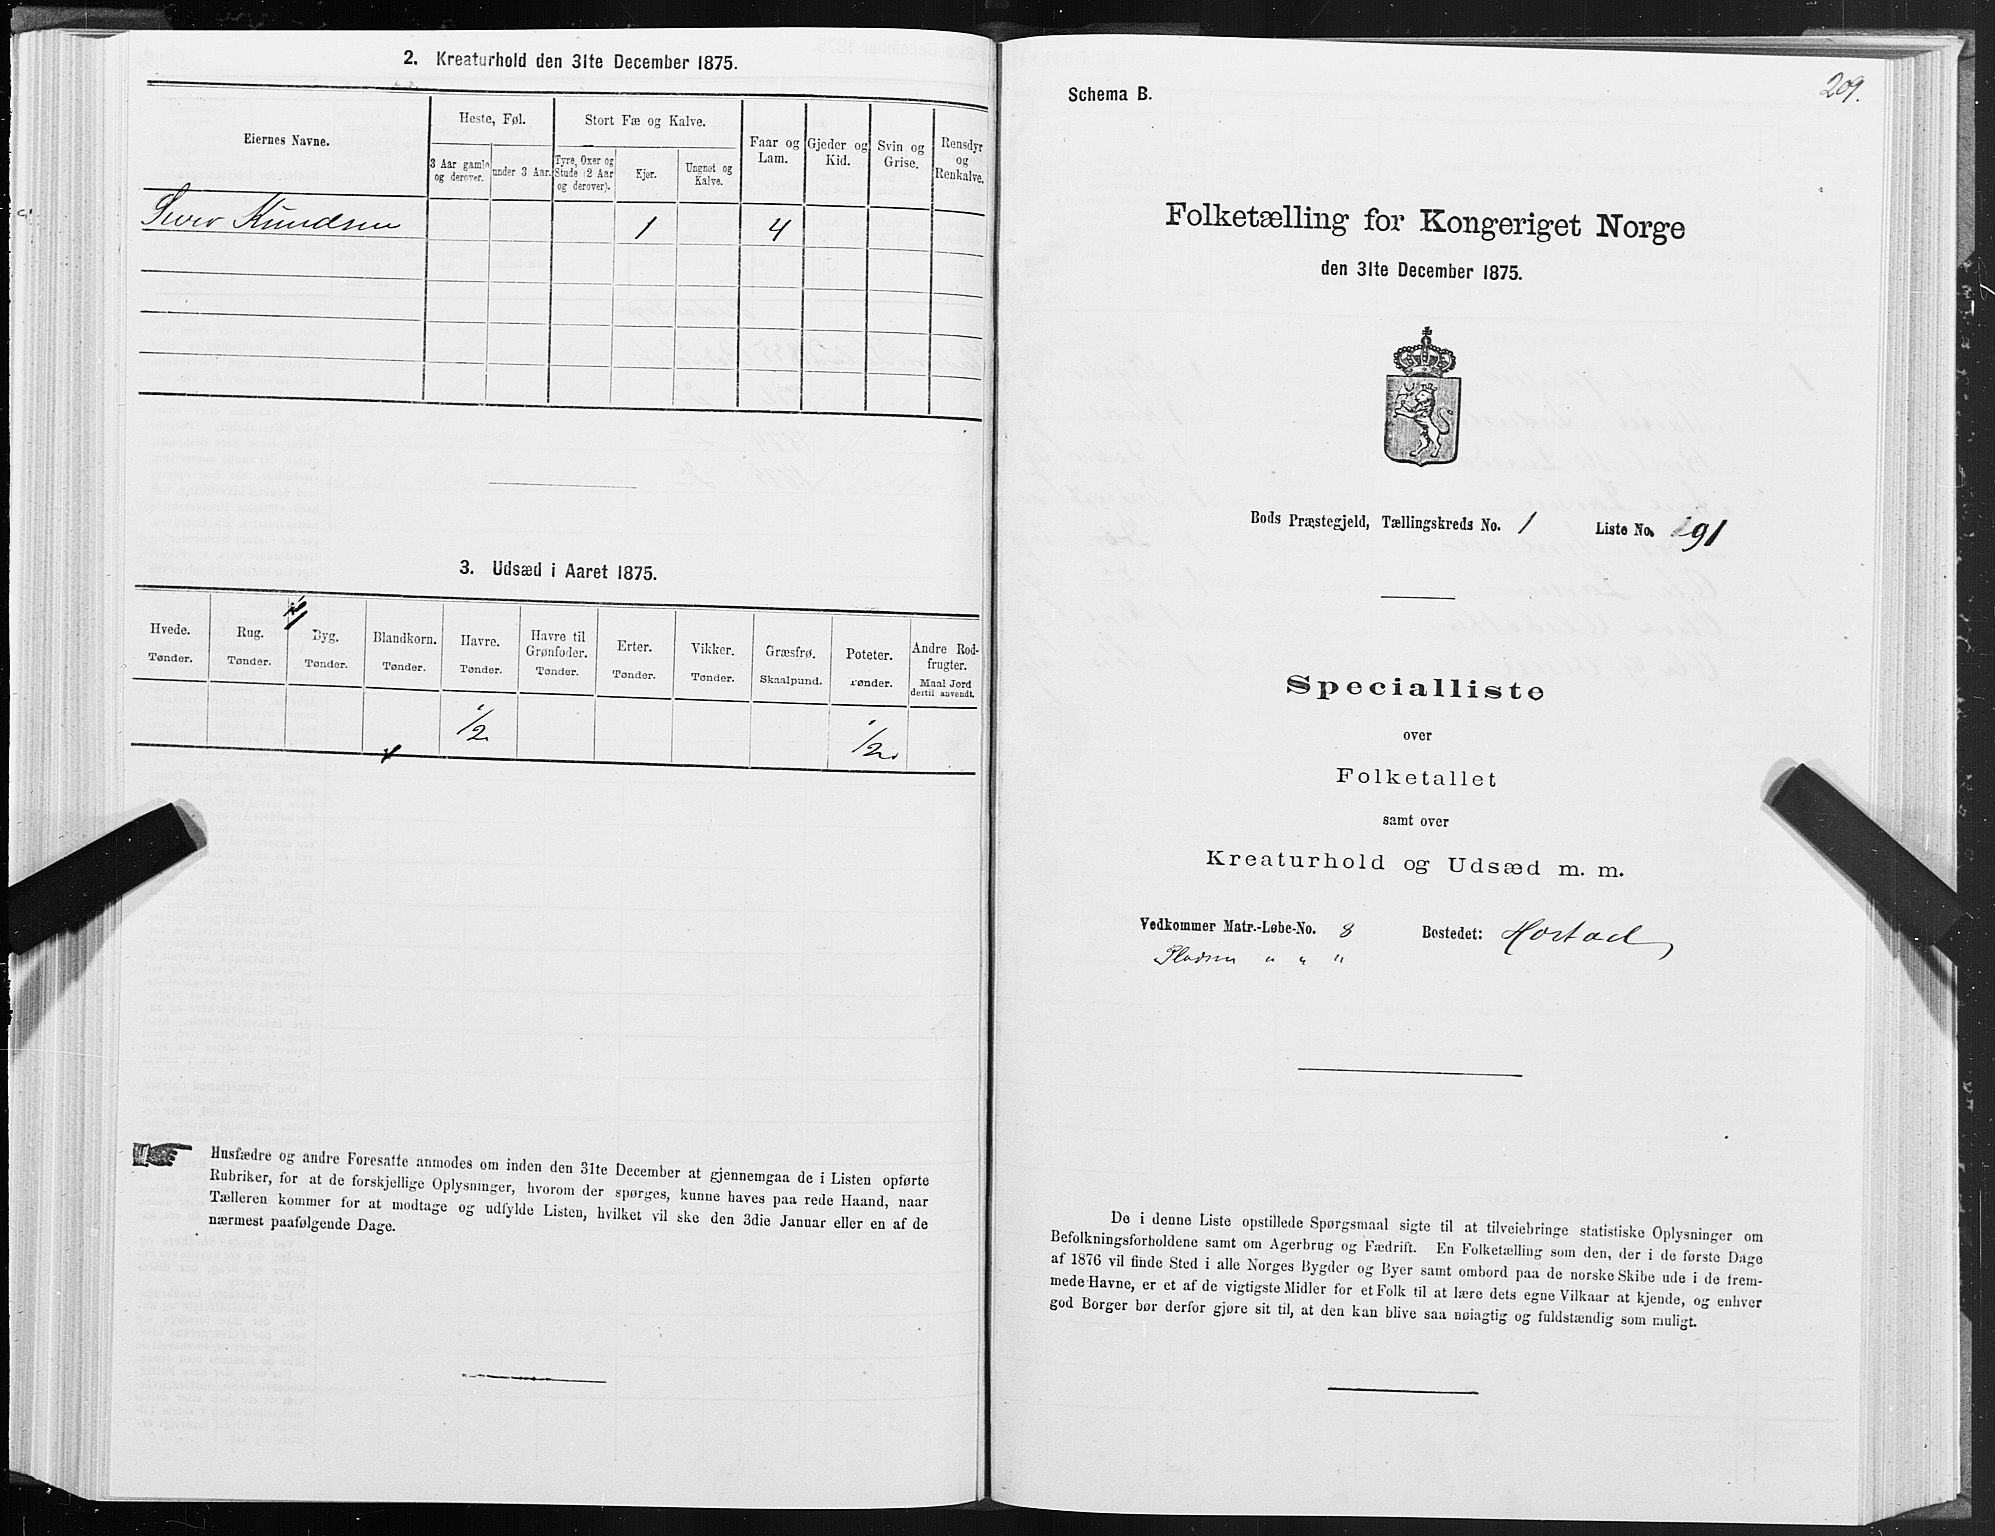 2. Kreaturhold den 31te December 1875.
Eiernes Navne.
Heste, Føl.
Stort Fæ og Kalve.
3 Aar gamle og derover.
under 3 Aar.
Tyre, Oxer og Stude (2 Aar og derover).
Kjør.
Ungnet og Kalve.
Faar og Lam.
Gjeder og Kid.
Svin og Grise.
Rensdyr og Renkalve.
Knudsen 1 4
3. Udsæd i Aaret 1875.
Hvede. Rug. Byg. Blandkorn. Havre. Havre til Grønfoder. Erter. Vikker. Græsfrø. Poteter. Andre Rodfrugter.
Tønder. Tønder. Tønder. Tønder. Tønder. Tønder. Tønder. Tønder. Skaalpund. Tønder. Maal Jord dertil anvendt.
1/2 1/2
Husfædre og andre Foresatte anmodes om inden den 31te December at gjennemgaa de i Listen opførte
Rubriker, for at de forskjellige Oplysninger, hvorom der spørges, kunne haves paa rede Haand, naar
Tælleren kommer for at modtage og udfylde Listen, hvilket vil ske den 3die Januar eller en af de
nærmest paafølgende Dage.
209.
Schema B.
Folketælling for Kongeriget Norge
den 31te December 1875.
Bods Præstegjeld, Tællingskreds No. 1 Liste No. 91
Specialliste
over
Folketallet
samt over
Kreaturhold og Udsæd m. m.
Vedkommer Matr.-Løbe-No. 8 Bostedet: Hostad
Pladsen " " "
De i denne Liste opstillede Spørgsmaal sigte til at tilveiebringe statistiske Oplysninger om
Befolkningsforholdene samt om Agerbrug og Fædrift. En Folketælling som den, der i de første Dage
af 1876 vil finde Sted i alle Norges Bygder og Byer samt ombord paa de norske Skibe ude i de frem-
mede Havne, er et af de vigtigste Midler for et Folk til at lære dets egne Vilkaar at kjende, og enhver
god Borger bør derfor gjøre sit til, at den kan blive saa nøiagtig og fuldstændig som muligt.